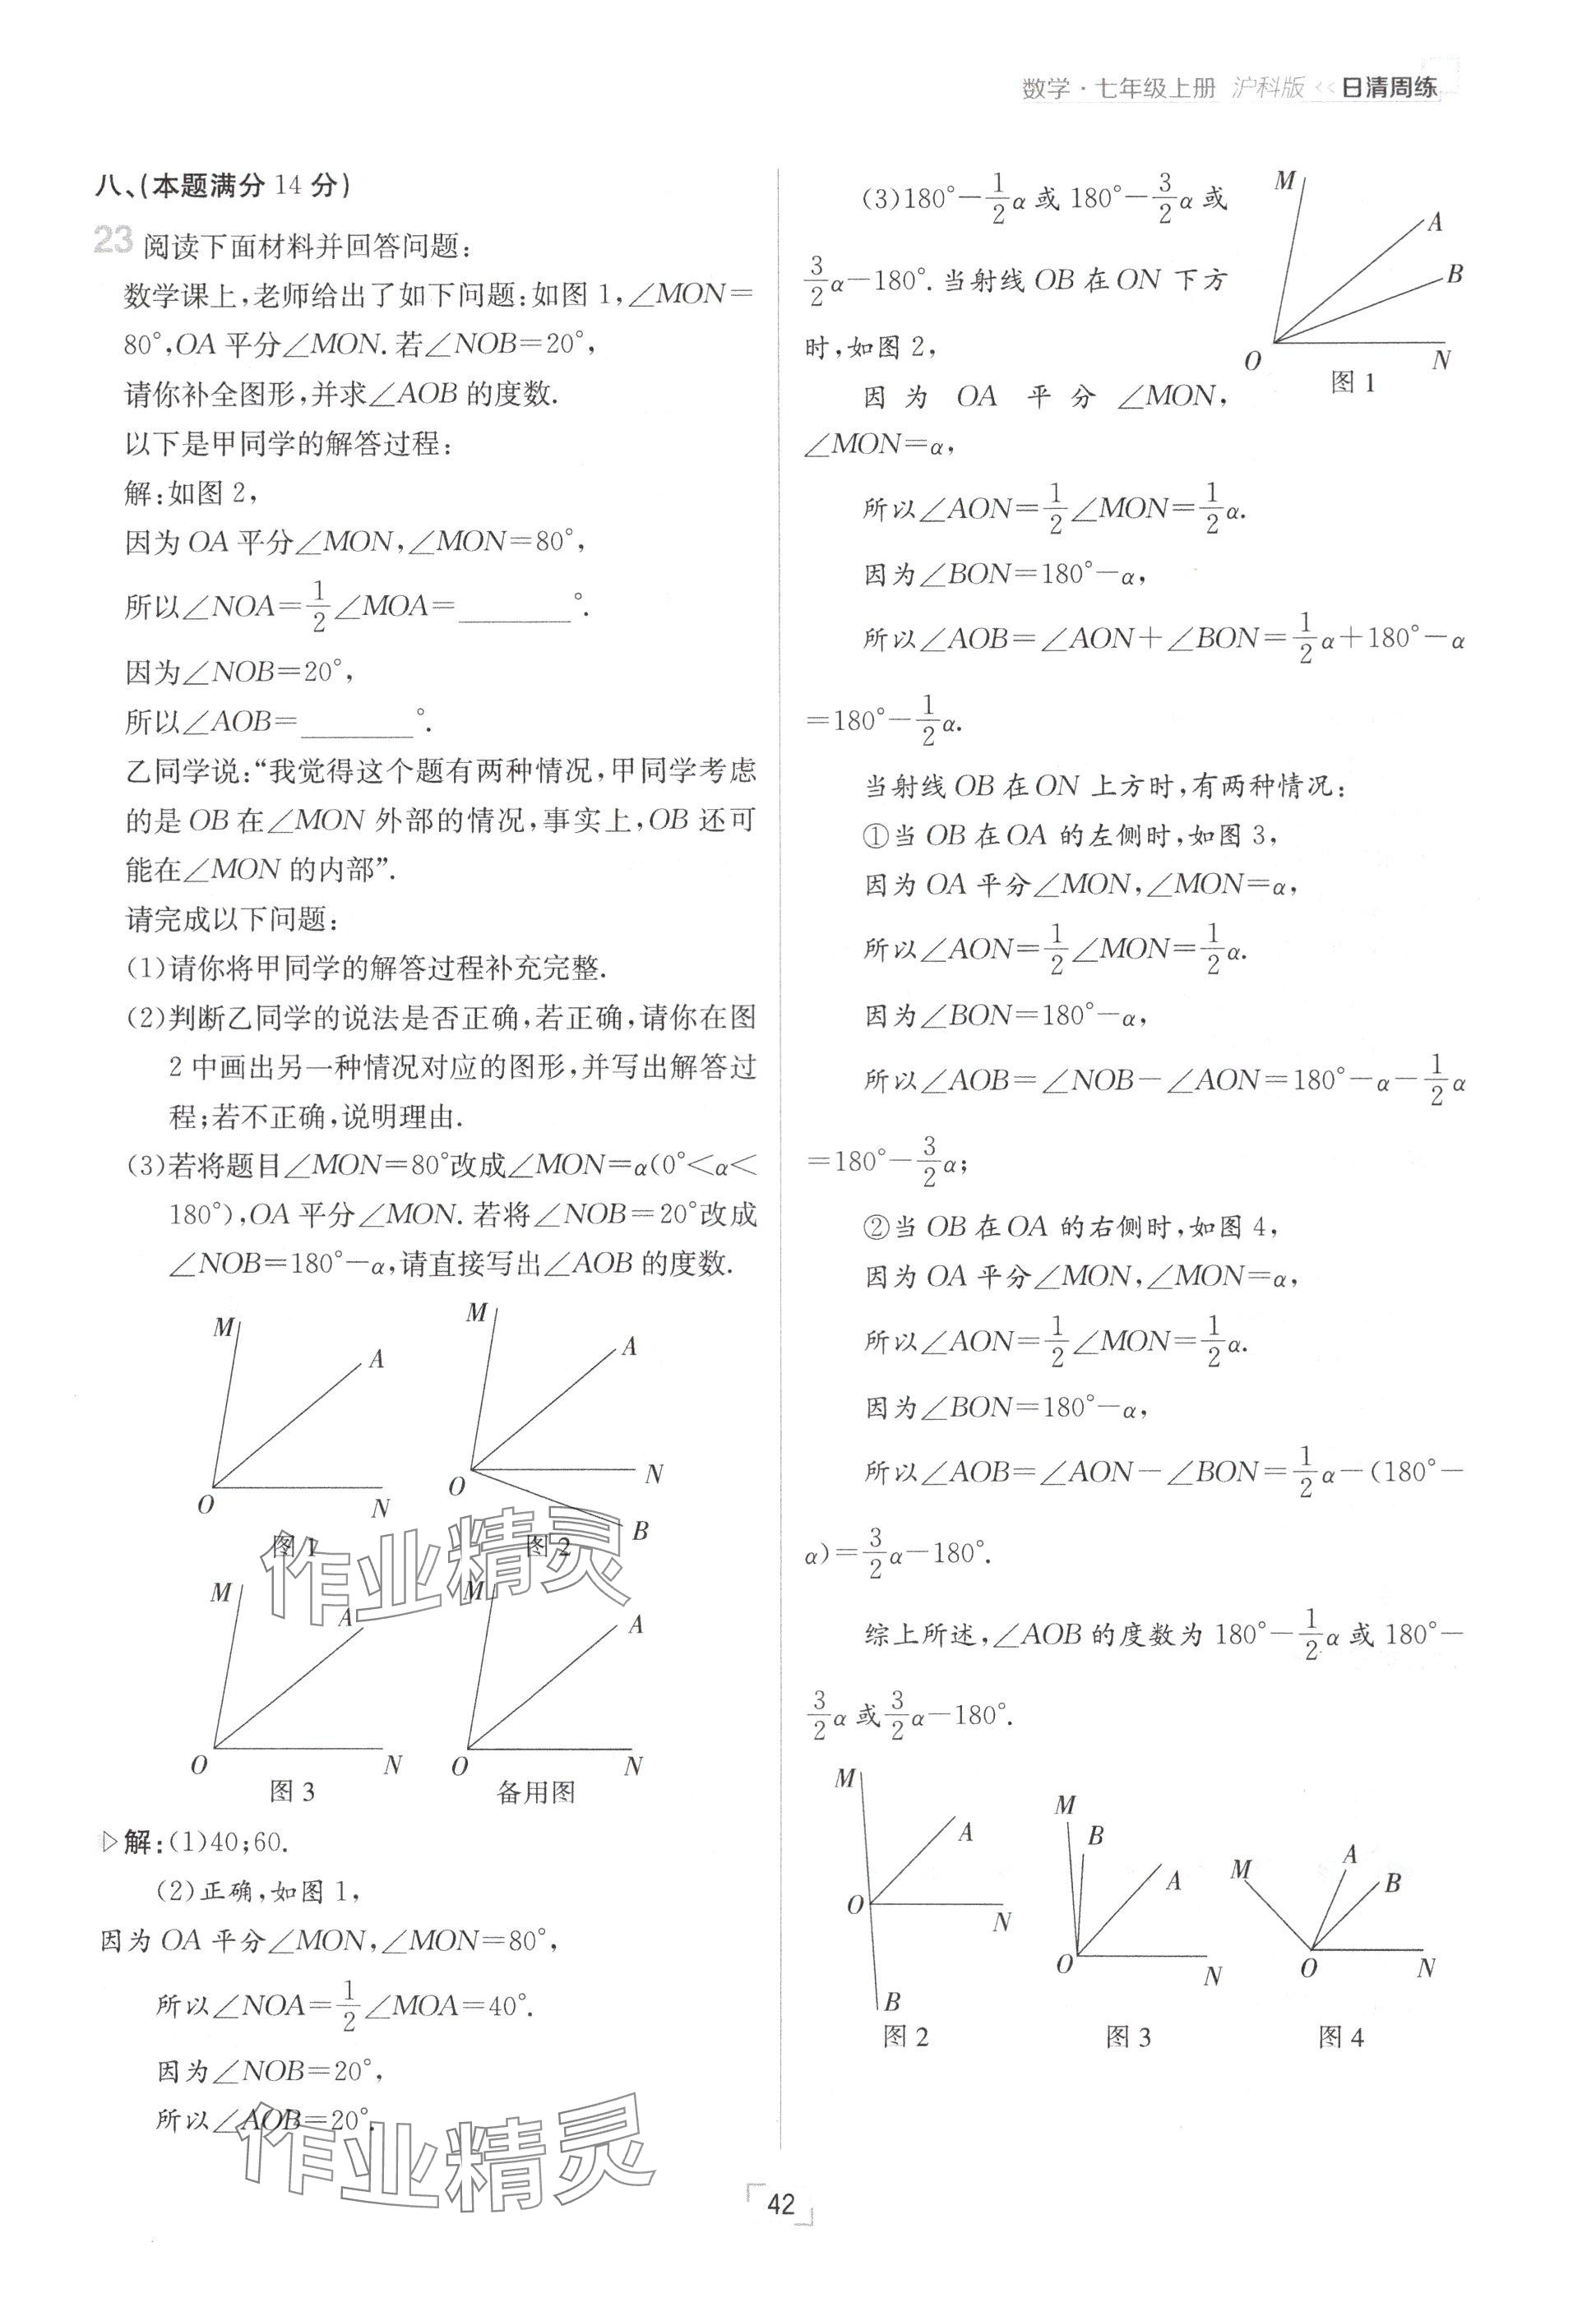 数学·七年级上册 沪科版 << 日清周练
八、(本题满分 14 分)
23 阅读下面材料并回答问题:
数学课上,老师给出了如下问题:如图 1,∠MON=
80°,OA 平分∠MON. 若∠NOB=20°,
请你补全图形,并求∠AOB 的度数.
以下是甲同学的解答过程:
解:如图 2,
因为 OA 平分∠MON,∠MON=80°,
所以∠NOA=1/2∠MOA=________°.
因为∠NOB=20°,
所以∠AOB=________°.
乙同学说:“我觉得这个题有两种情况,甲同学考虑
的是 OB 在∠MON 外部的情况,事实上,OB 还可
能在∠MON 的内部”.
请完成以下问题:
(1)请你将甲同学的解答过程补充完整.
(2)判断乙同学的说法是否正确,若正确,请你在图
2 中画出另一种情况对应的图形,并写出解答过
程;若不正确,说明理由.
(3)若将题目∠MON=80°改成∠MON=α(0°<α<
180°),OA 平分∠MON. 若将∠NOB=20°改成
∠NOB=180°-α,请直接写出∠AOB 的度数.
M A O N
图 1
M A O N B
图 2
M A O N
图 3
M A O N
备用图
作业精灵
▷解:(1)40;60.
(2)正确,如图 1,
因为 OA 平分∠MON,∠MON=80°,
所以∠NOA=1/2∠MOA=40°.
因为∠NOB=20°,
所以∠AOB=20°.
作业精灵
(3)180°-1/2α 或 180°-3/2α 或
3/2α-180°. 当射线 OB 在 ON 下方
时,如图 2,
M A B O N
图 1
因为 OA 平分∠MON,
∠MON=α,
所以∠AON=1/2∠MON=1/2α.
因为∠BON=180°-α,
所以∠AOB=∠AON+∠BON=1/2α+180°-α
=180°-1/2α.
当射线 OB 在 ON 上方时,有两种情况:
①当 OB 在 OA 的左侧时,如图 3,
因为 OA 平分∠MON,∠MON=α,
所以∠AON=1/2∠MON=1/2α.
因为∠BON=180°-α,
所以∠AOB=∠NOB-∠AON=180°-α-1/2α
=180°-3/2α;
②当 OB 在 OA 的右侧时,如图 4,
因为 OA 平分∠MON,∠MON=α,
所以∠AON=1/2∠MON=1/2α.
因为∠BON=180°-α,
所以∠AOB=∠AON-∠BON=1/2α-(180°-
α)=3/2α-180°.
综上所述,∠AOB 的度数为 180°-1/2α 或 180°-
3/2α 或 3/2α-180°.
M A O N B
图 2
M B A O N
图 3
M A B O N
图 4
42